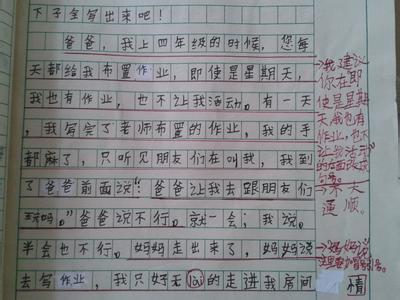 下子全写出来吧！
爸爸，我上四年级的时候，您每
天都给我布置作业，即使是星期天，
我也有作业，也不让我活动。有一天
，我写完了老师布置的作业，我的手
都麻了，只听见朋友们在叫我，我到
了爸爸前面说：“爸爸让我去跟朋友们
玩吗。”爸爸说不行。就一会；我说。
半会也不行。妈妈走出来了，妈妈说
去写作业，我只好无lài的走进我房间
情
我建议
你在即
使是星期
天我也有
作业，也不
让我活动
的后面改成
句号。
不太
通顺。
妈妈说
这里要加冒号引号。